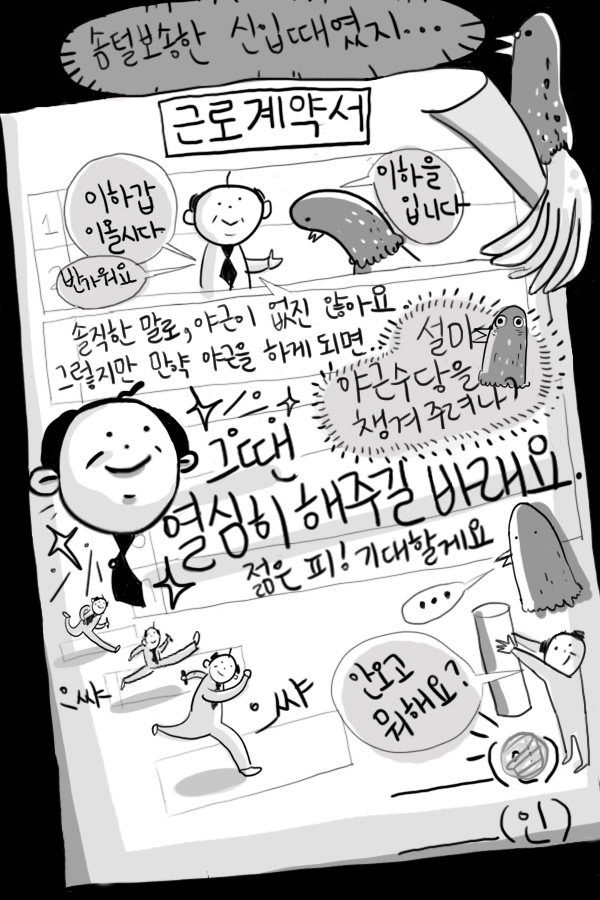 솜털보송한 신입때였지...
근로계약서
이하갑
이올시다
반가워요
이하을
입니다
1
2
솔직한 말로, 야근이 없진 않아요.
그렇지만 만약 야근을 하게 되면..
설마
야근수당을
챙겨주려나?
그땐
열심히 해주길 바래요.
젊은 피! 기대할게요
...
으쌰
으쌰
안오고
뭐해요?
(인)